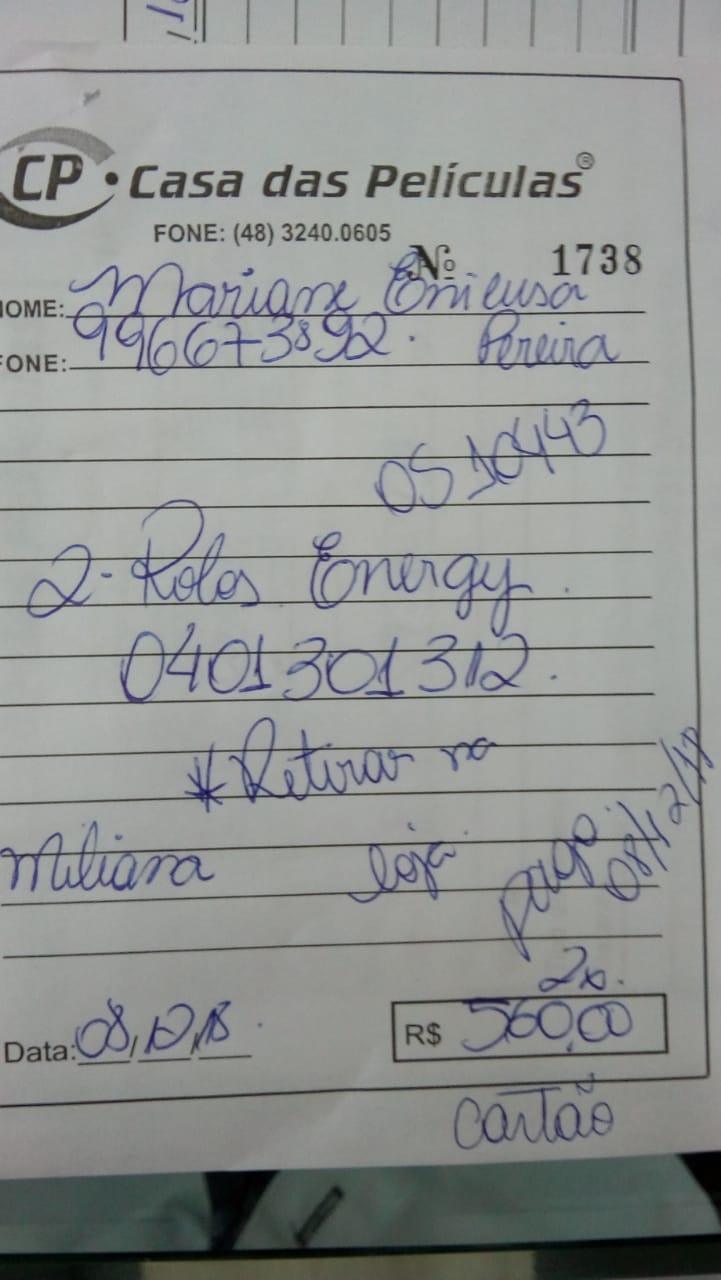 CP • Casa das Películas®
FONE: (48) 3240.0605
Nº 1738
NOME: Mariane
FONE: 996673892. Pereira
OS 10443
2- Rolos Energy.
0401301312.
*Retirar na
loja
pago
08/12/18
2x.
Data: 08/12/18. R$ 560,00
Cartão